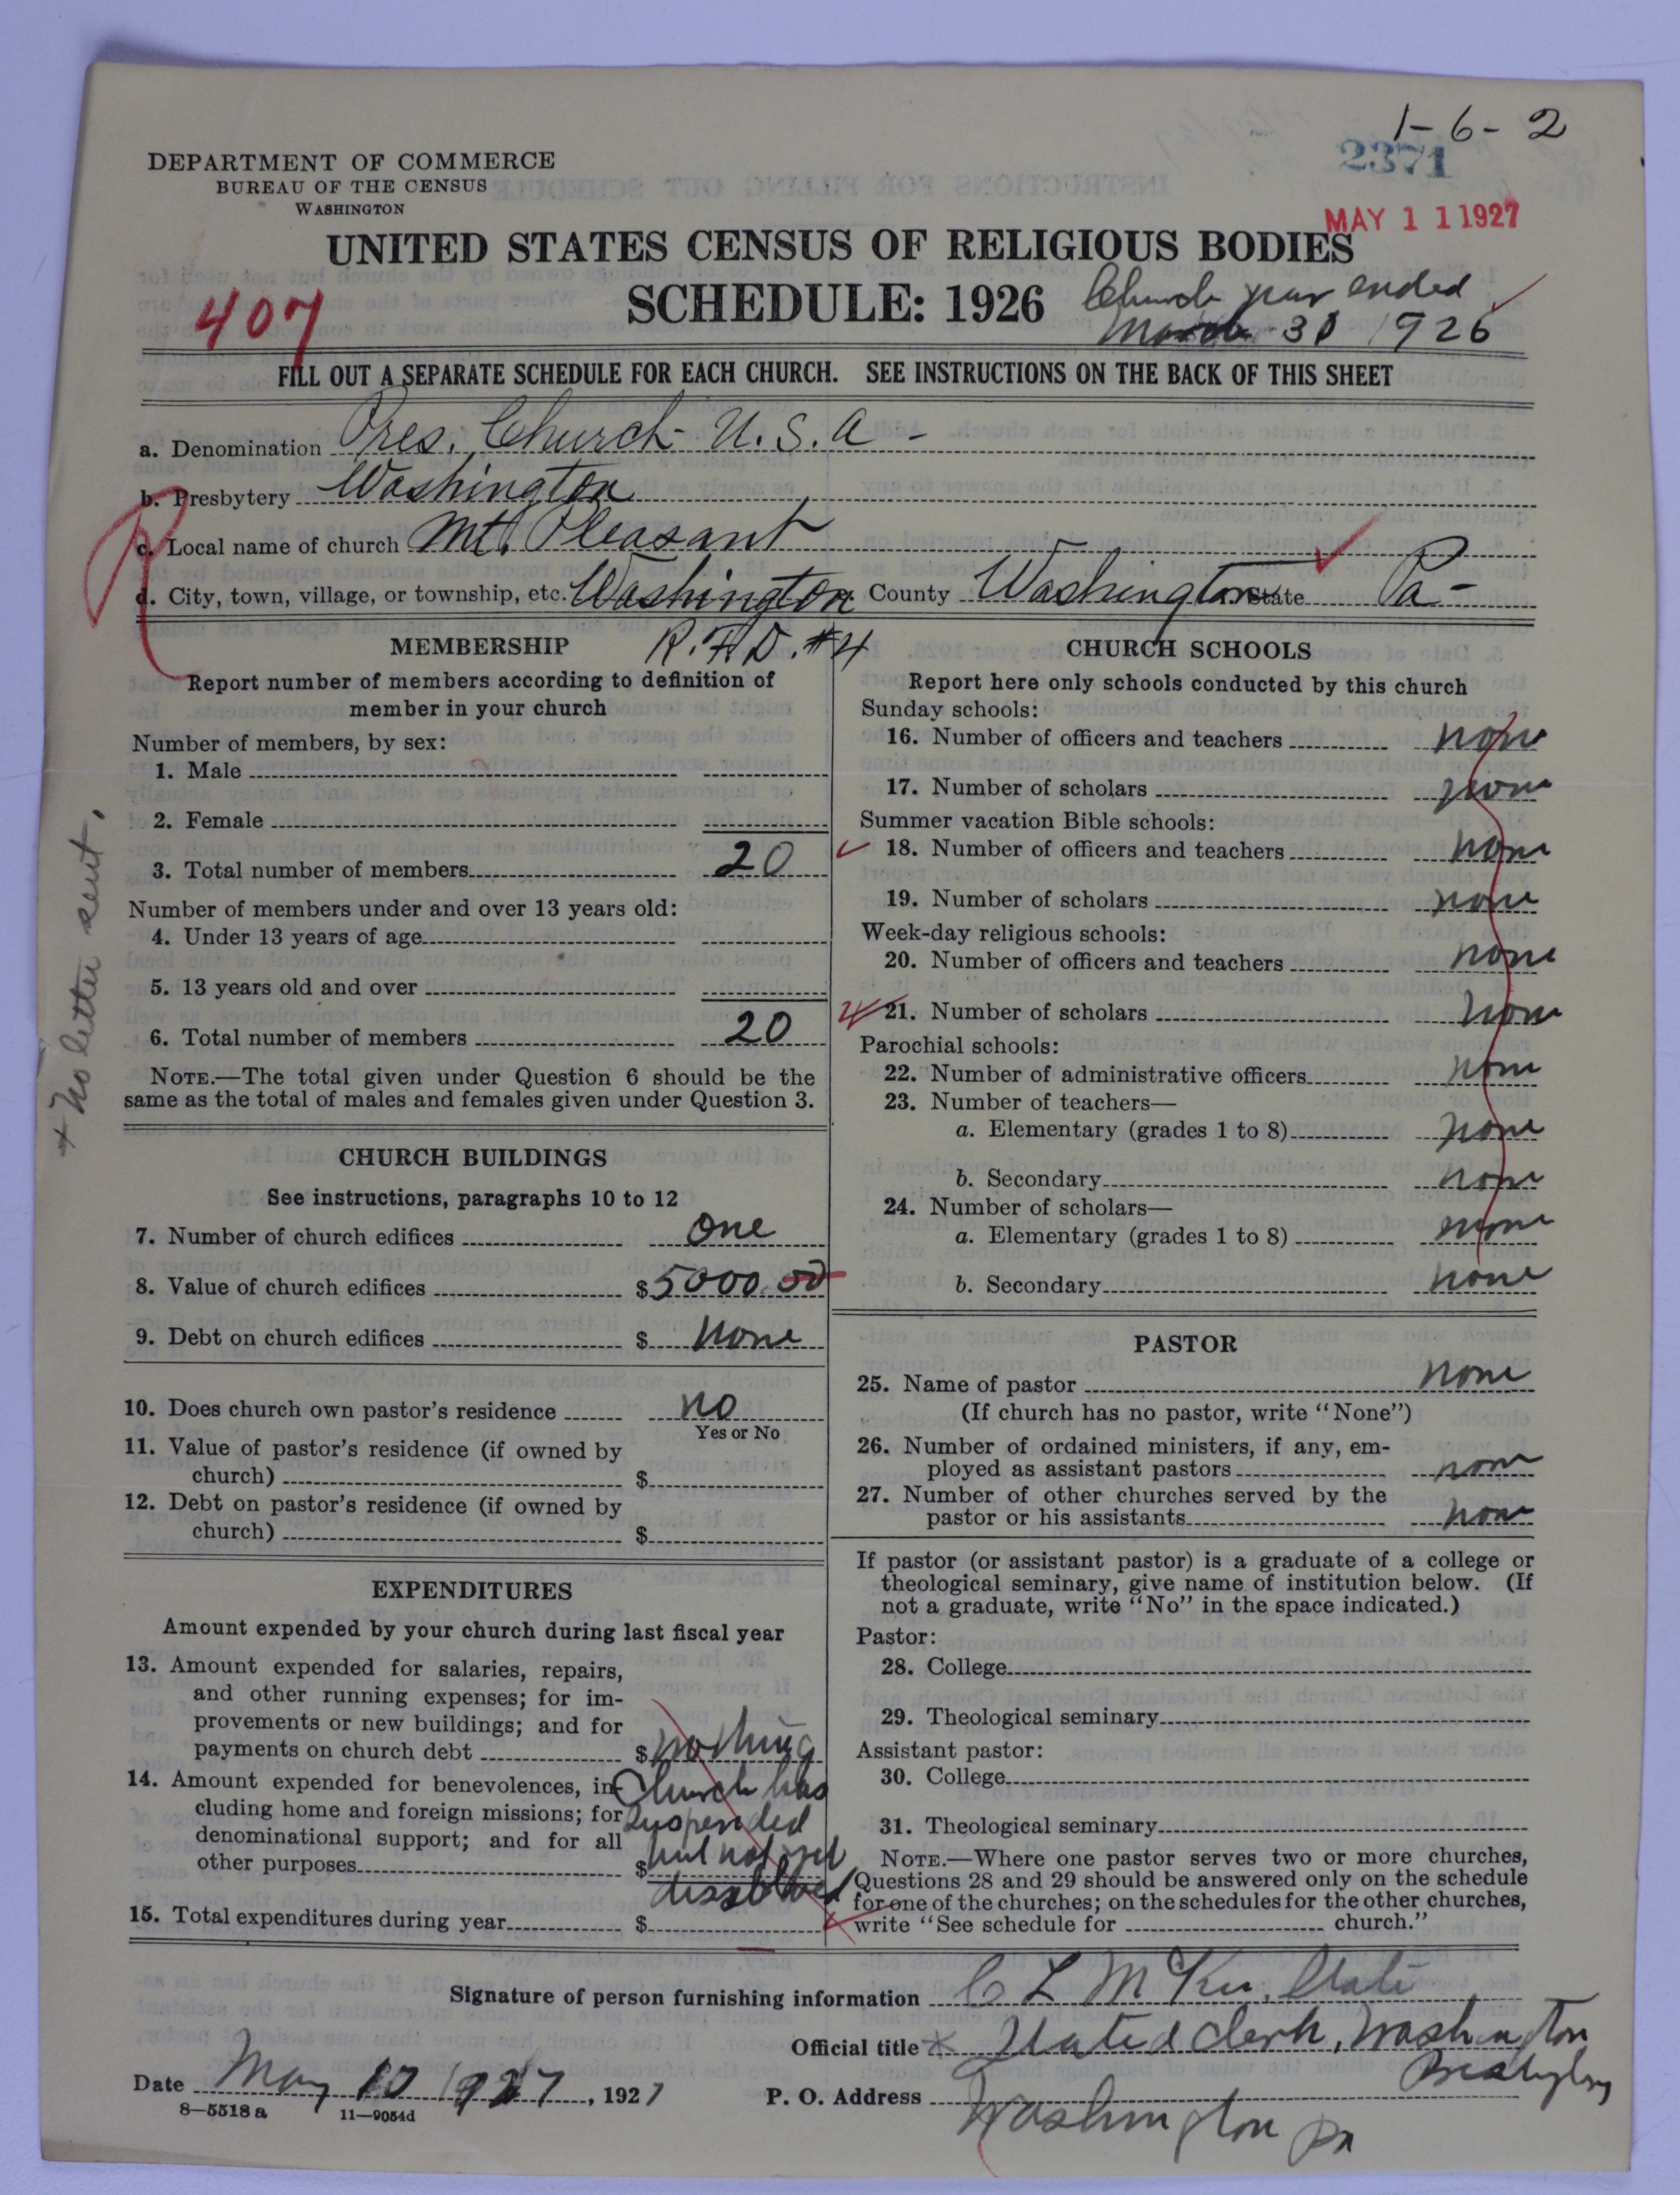 1-6-2
2371
DEPARTMENT OF COMMERCE
BUREAU OF THE CENSUS
WASHINGTON
MAY 11 1927
UNITED STATES CENSUS OF RELIGIOUS BODIES
SCHEDULE: 1926
Church year ended
March 31 1926
407
FILL OUT A SEPARATE SCHEDULE FOR EACH CHURCH. SEE INSTRUCTIONS ON THE BACK OF THIS SHEET
a. Denomination Pres. Church U.S.A -
b. Presbytery Washington
c. Local name of church Mt. Pleasant
d. City, town, village, or township, etc. Washington County Washington State Pa-
R.F.D. #4
MEMBERSHIP
Report number of members according to definition of
member in your church
Number of members, by sex:
1. Male
2. Female
3. Total number of members 20
Number of members under and over 13 years old:
4. Under 13 years of age
5. 13 years old and over
6. Total number of members 20
NOTE.—The total given under Question 6 should be the
same as the total of males and females given under Question 3.
+ No letter sent.
CHURCH BUILDINGS
See instructions, paragraphs 10 to 12
7. Number of church edifices One
8. Value of church edifices $5000.00
9. Debt on church edifices $ None
10. Does church own pastor's residence No
Yes or No
11. Value of pastor's residence (if owned by
church) $
12. Debt on pastor's residence (if owned by
church) $
EXPENDITURES
Amount expended by your church during last fiscal year
13. Amount expended for salaries, repairs,
and other running expenses; for im-
provements or new buildings; and for
payments on church debt $ nothing
14. Amount expended for benevolences, in- Church has
cluding home and foreign missions; for suspended
denominational support; and for all but not yet
other purposes $
dissolved
15. Total expenditures during year $
CHURCH SCHOOLS
Report here only schools conducted by this church
Sunday schools:
16. Number of officers and teachers none
17. Number of scholars none
Summer vacation Bible schools:
18. Number of officers and teachers none
19. Number of scholars none
Week-day religious schools:
20. Number of officers and teachers none
21. Number of scholars none
Parochial schools:
22. Number of administrative officers none
23. Number of teachers—
a. Elementary (grades 1 to 8) none
b. Secondary none
24. Number of scholars—
a. Elementary (grades 1 to 8) none
b. Secondary none
PASTOR
25. Name of pastor none
(If church has no pastor, write "None")
26. Number of ordained ministers, if any, em-
ployed as assistant pastors none
27. Number of other churches served by the
pastor or his assistants none
If pastor (or assistant pastor) is a graduate of a college or
theological seminary, give name of institution below. (If
not a graduate, write "No" in the space indicated.)
Pastor:
28. College
29. Theological seminary
Assistant pastor:
30. College
31. Theological seminary
NOTE.—Where one pastor serves two or more churches,
Questions 28 and 29 should be answered only on the schedule
for one of the churches; on the schedules for the other churches,
write "See schedule for church."
Signature of person furnishing information C L McKee, State
Official title Stated Clerk, Washington
Presbytery
Date May 10 1927, 1927 P. O. Address Washington Pa
8-5518 a 11-9054d